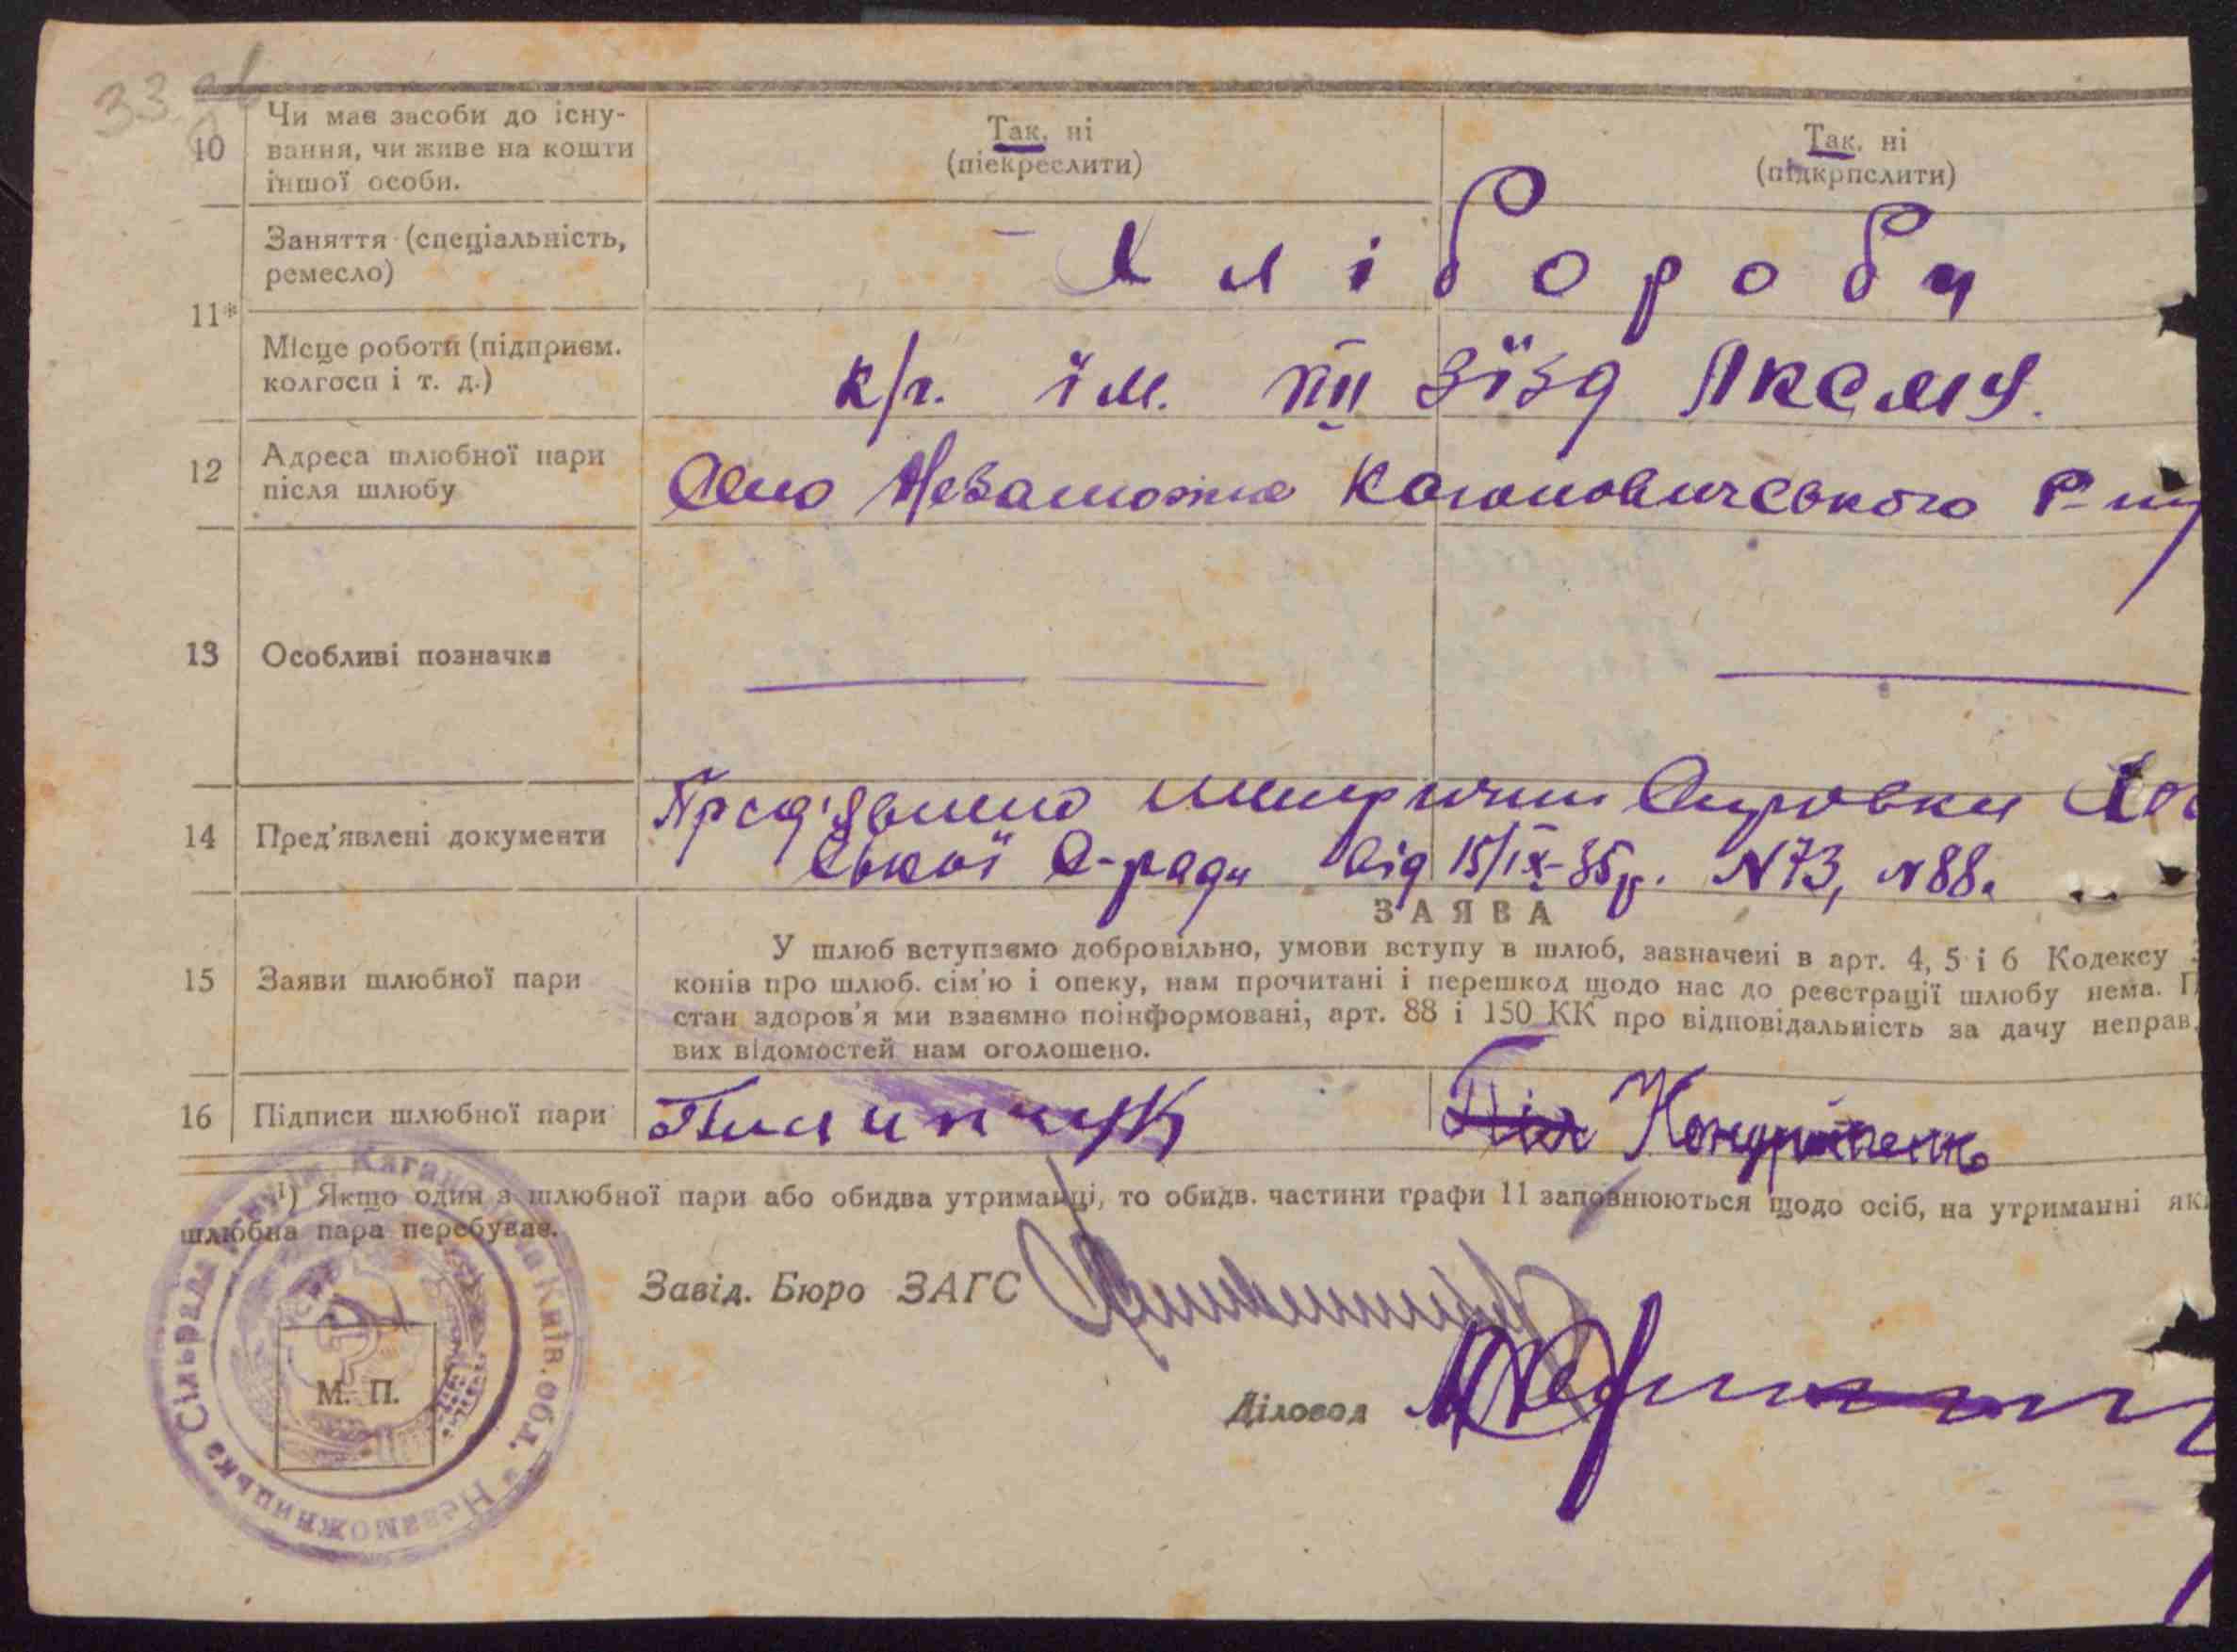 33
10 Чи має засоби до існу-
вання, чи живе на кошти
іншої особи.
Так, ні
(піекреслити)
Так, ні
(підкрпслити)
11*
Заняття (спеціальність,
ремесло)
Хлібороби
Місце роботи (підприєм.
колгосп і т. д.)
к/г. ім. VIII Зїзд ЛКСМУ.
12 Адреса шлюбної пари
після шлюбу
Село Незаможне Кагановичського Р-ну
13 Особливі позначка
14 Пред'явлені документи
Пред'явлено
ської С-ради від 15/IX-35р. N73, N88.
ЗАЯВА
15 Заяви шлюбної пари
У шлюб вступзємо добровільно, умови вступу в шлюб, зазначені в арт. 4, 5 і 6 Кодексу
конів про шлюб. сім'ю і опеку, нам прочитані і перешкод щодо нас до реєстрації шлюбу нема. П
стан здоров'я ми взаємно поінформовані, арт. 88 і 150 КК про відповідальність за дачу неправ.
вих відомостей нам оголошено.
16 Підписи шлюбної пари
1) Якщо один з шлюбної пари або обидва утриманці, то обидв. частини графи 11 заповнюються щодо осіб, на утриманні як
шлюбна пара перебуває.
Завід. Бюро ЗАГС
Діловод
М. П.
Незаможницька Сільрада
Київ. обл.